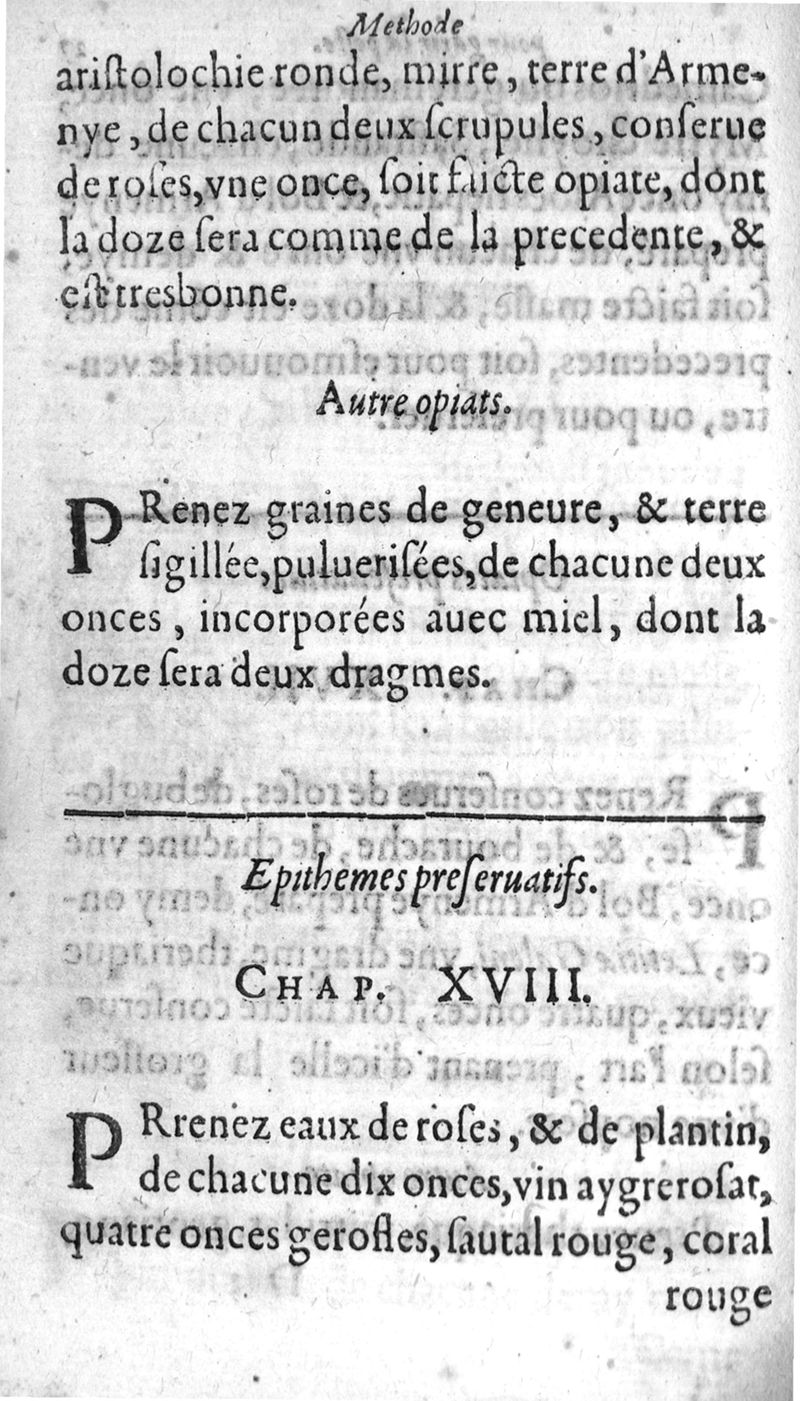 Methode
ariſtolochie ronde, mirre, terre d'Arme-
nye, de chacun deux ſcrupules, conſerue
de roſes, vne once, ſoit faicte opiate, dont
la doze ſera comme de la precedente, &
eſt tresbonne.
Autre opiats.
PRenez graines de geneure, & terre
ſigillée, pulueriſées, de chacune deux
onces, incorporées auec miel, dont la
doze ſera deux dragmes.
Epithemes preſeruatifs.
CHAP. XVIII.
PRrenez eaux de roſes, & de plantin,
de chacune dix onces, vin aygreroſat,
quatre onces gerofles, ſautal rouge, coral
rouge